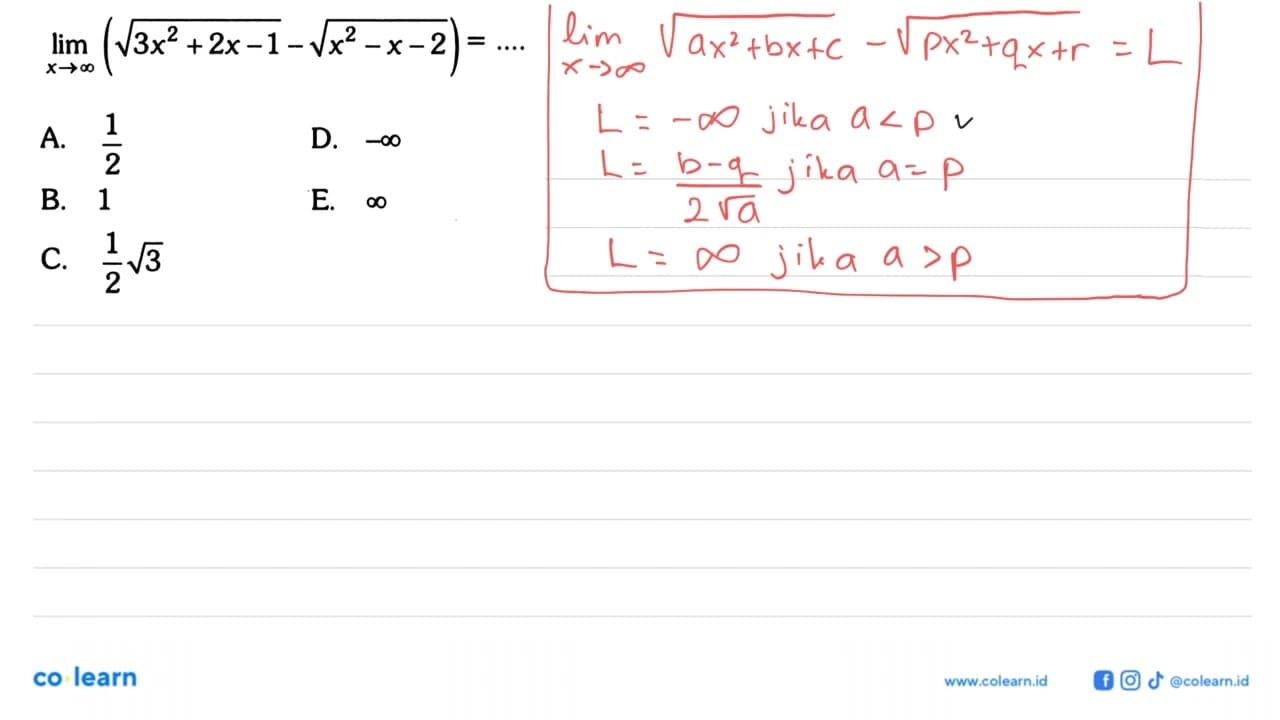 lim x→∞ (√(3x² + 2x − 1) − √(x² − x − 2)) = ....
A. 1/2
B. 1
C. 1/2 √3
D. −∞
E. ∞
lim x→∞ √(ax²+bx+c) − √(px²+qx+r) = L
L = −∞ jika a < p ✓
L = (b−q)/(2√a) jika a = p
L = ∞ jika a > p
co learn
www.colearn.id
@colearn.id